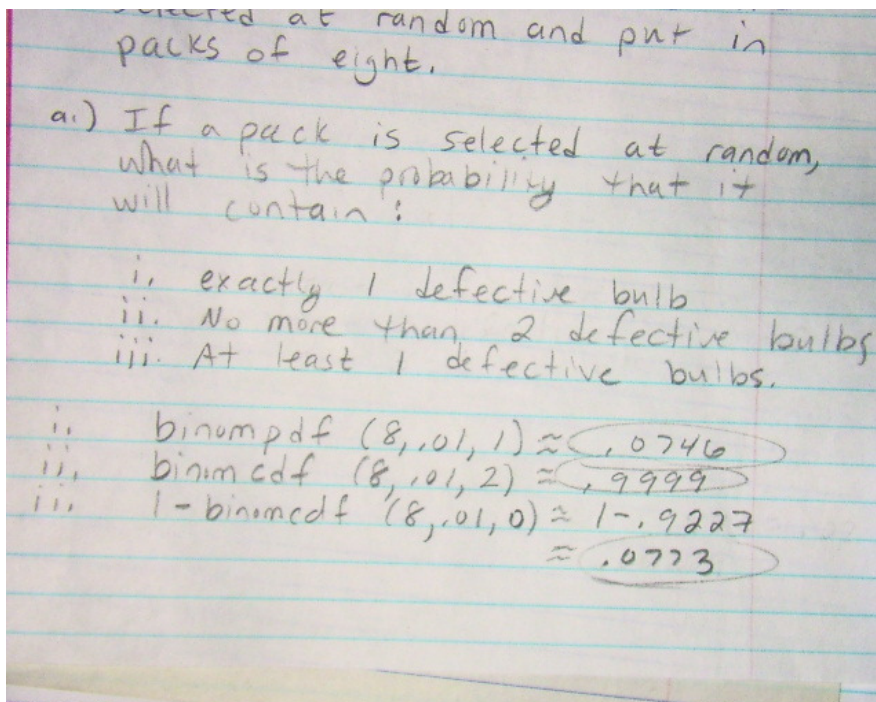 selected at random and put in
packs of eight.
a.) If a pack is selected at random,
what is the probability that it
will contain:
i. exactly 1 defective bulb
ii. No more than 2 defective bulbs
iii. At least 1 defective bulbs.
i. binompdf (8, .01, 1) ≈ .0746
ii. binimcdf (8, .01, 2) ≈ .9999
iii. 1 - binomcdf (8, .01, 0) ≈ 1-.9227
≈ .0773